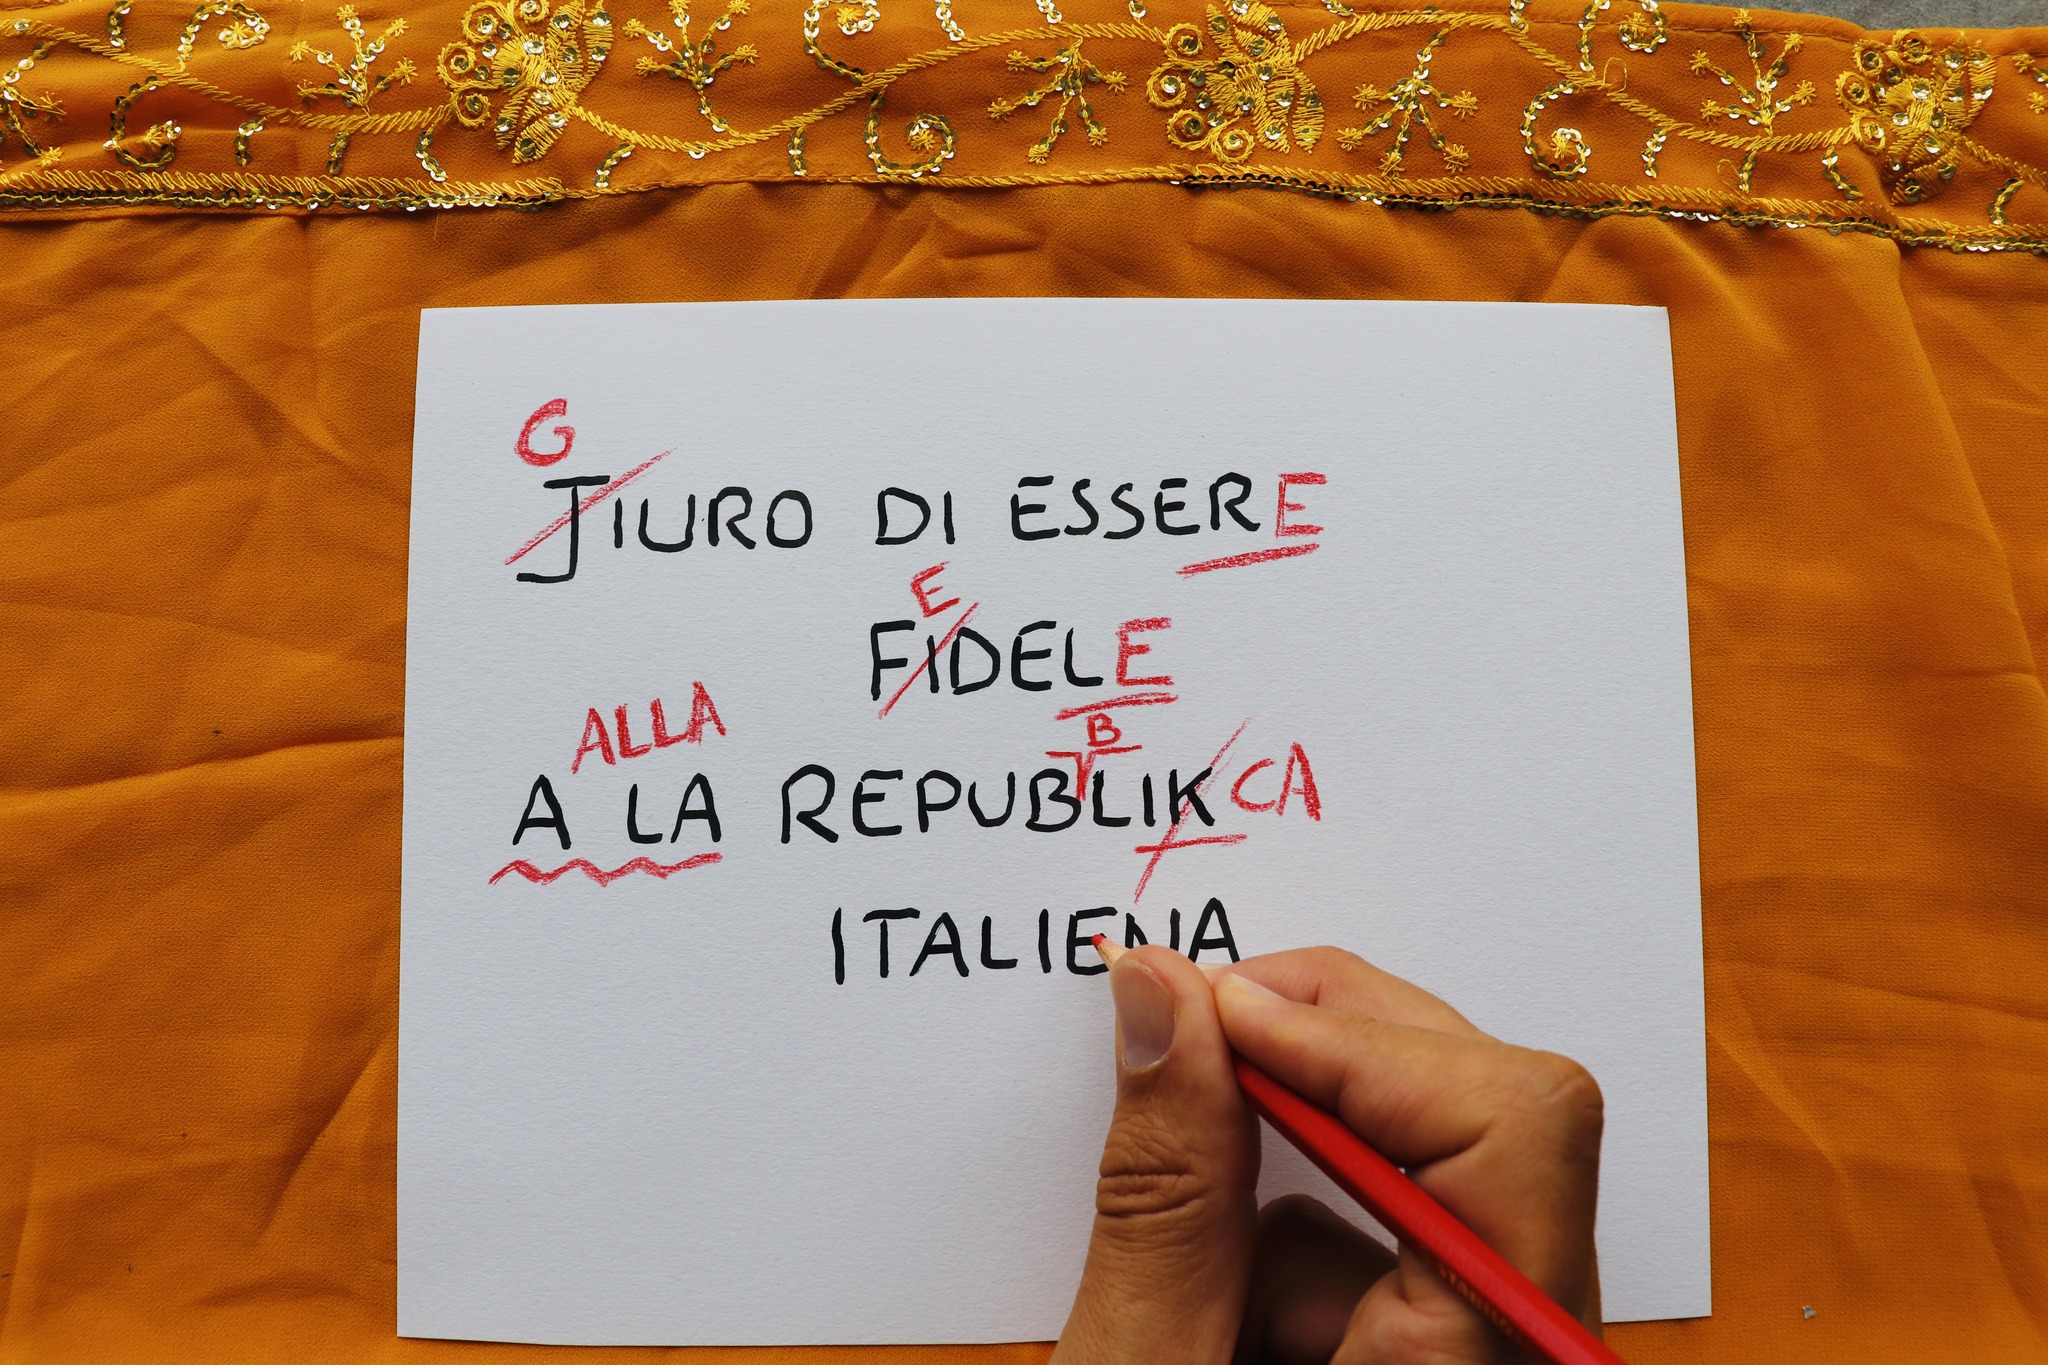 G
JIURO DI ESSERE
E
FIDELE
ALLA B
A LA REPUBLIK CA
ITALIENA